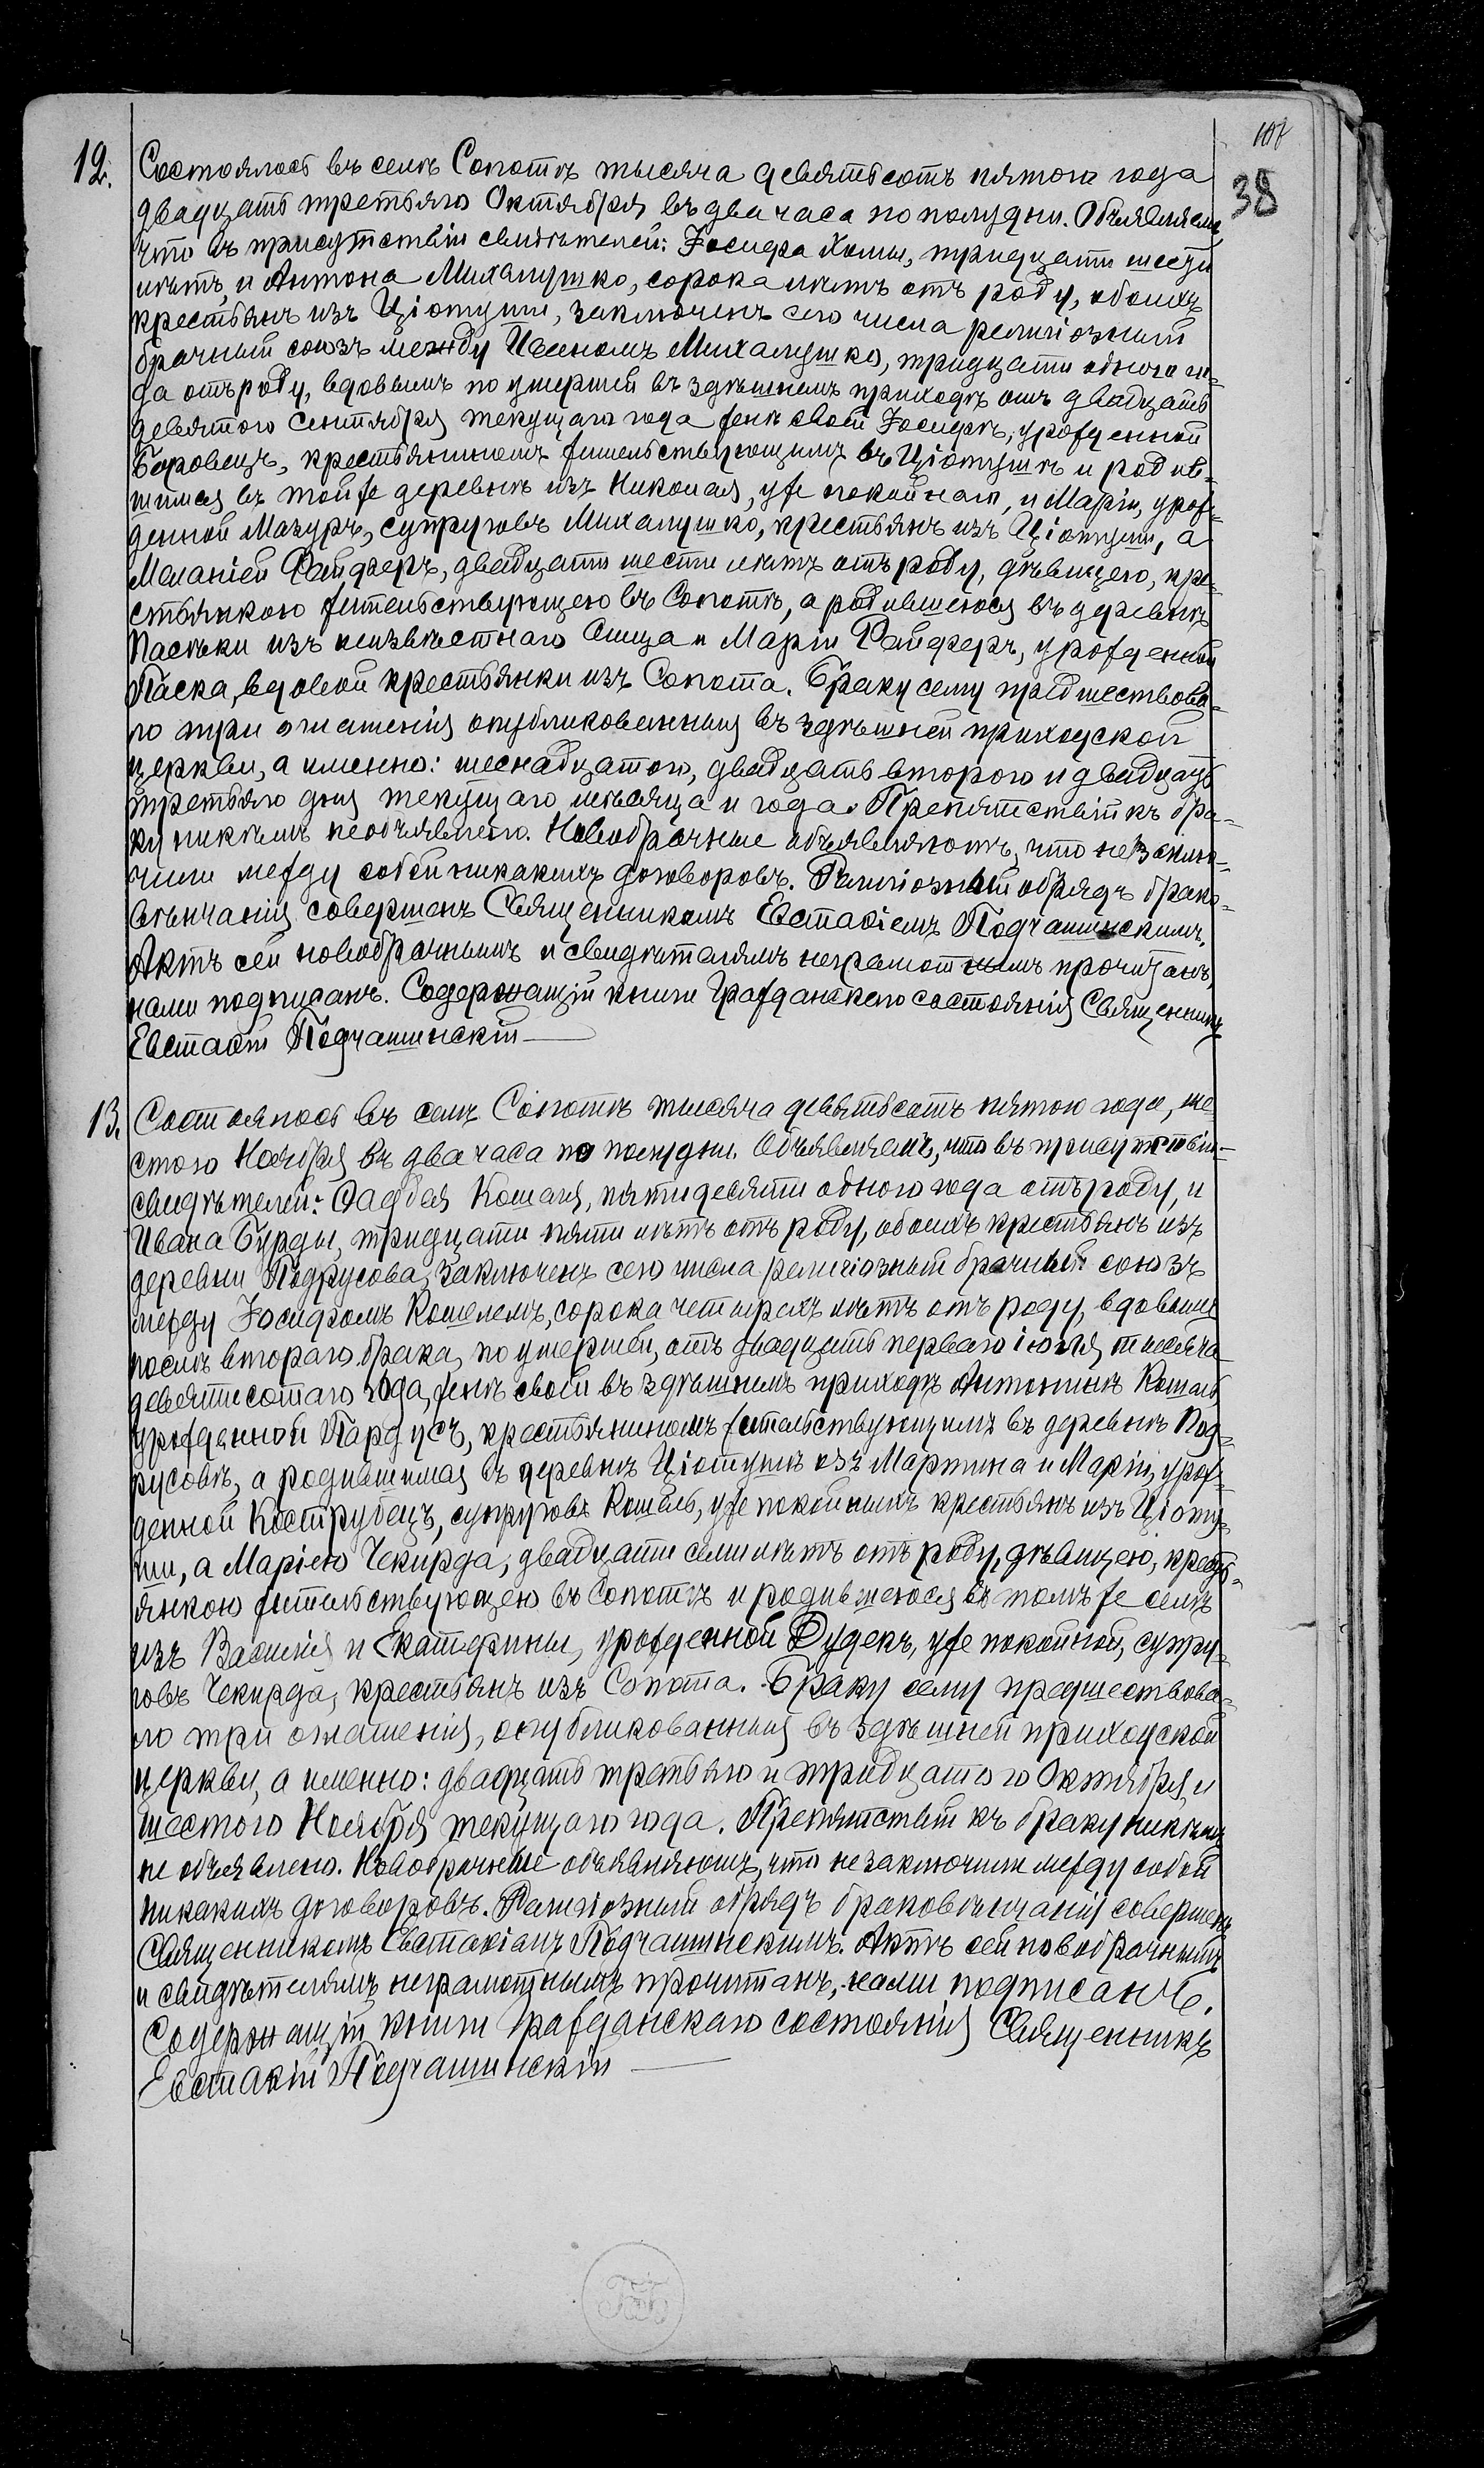 107
38
12. Состоялось въ селѣ Сопотѣ тысяча девятьсотъ пятого года
двадцать третьяго Октября въ два часа по полудни. Объявляемъ,
что въ присутствіи свидѣтелей: Іосифа Хомы, тридцати шести
лѣтъ, и Антона Михалушко, сорока лѣтъ отъ роду, обоихъ
крестьянъ изъ Ціотуши, заключенъ сего числа религіозный
брачный союзъ между Иваномъ Михалушко, тридцати одного го-
да отъ роду, вдовымъ по умершей въ здѣшнемъ приходѣ отъ двадцать
девятого Сентября текущаго года женѣ своей Іосифѣ, урожденной
Боровецъ, крестьяниномъ жительствующимъ въ Ціотушѣ и родив-
шимся въ той же деревнѣ изъ Николая, уже покойнаго, и Маріи, урож-
денной Мазуръ, супруговъ Михалушко, крестьянъ изъ Ціотуши, а
Меланіей Файферъ, двадцати шести лѣтъ отъ роду, дѣвицею, кре-
стьянкою жительствующею въ Сопотѣ, а родившеюся въ деревнѣ
Пасѣки изъ неизвѣстнаго Отца и Маріи Файферъ, урожденной
Паска, вдовой крестьянки изъ Сопота. Браку сему предшествова-
ло три оглашенія опубликованныя въ здѣшней приходской
церкви, а именно: шеснадцатого, двадцать второго и двадцать
третьяго дня текущаго мѣсяца и года. Препятствій къ бра-
ку никѣмъ необъявлено. Новобрачные объявляютъ, что не заклю-
чили между собой никакихъ договоровъ. Религіозный обрядъ брако-
вѣнчанія совершенъ Священникомъ Евстакіемъ Подчашинскимъ.
Актъ сей новобрачнымъ и свидѣтелямъ неграмотнымъ прочитанъ,
нами подписанъ. Содержащій книги Гражданскаго состоянія Священникъ
Евстакій Подчашинскій
13. Состоялось въ селѣ Сопотѣ тысяча девятьсотъ пятого года, ше
стого Ноября въ два часа по полудни. Объявляемъ, что въ присутствіи
свидѣтелей: Фадбея Кошаля, пятидесяти одного года отъ роду, и
Ивана Бурды, тридцати пяти лѣтъ отъ роду, обоихъ крестьянъ изъ
деревни Подрусова, заключенъ сего числа религіозный брачный союзъ
между Іосифомъ Кошелемъ, сорока четырехъ лѣтъ отъ роду, вдовымъ
послѣ второго брака, по умершей, отъ двадцать перваго іюля тысяча
девятисотаго года, женѣ своей въ здѣшнемъ приходѣ Антонинѣ Кошель,
урожденной Пардусъ, крестьяниномъ жительствующимъ въ деревнѣ Под-
русовѣ, а родившимся въ деревнѣ Ціотушѣ изъ Мартина и Маріи, урож-
денной Кострубецъ, супруговъ Кошель, уже покойныхъ крестьянъ изъ Ціоту-
ши, а Маріею Чекирда, двадцати семи лѣтъ отъ роду, дѣвицею, кресть-
янкою жительствующею въ Сопотѣ и родившеюся въ томъ же селѣ
изъ Василія и Екатерины, урожденной Дудекъ, уже покойной, супру-
говъ Чекирда, крестьянъ изъ Сопота. Браку сему предшествова-
ло три оглашенія, опубликованныя въ здѣшней приходской
церкви, а именно: двадцать третьяго и тридцатого Октября и
шестого Ноября текущаго года. Препятствій къ браку никѣмъ
не объявлено. Новобрачные объявляютъ, что не заключили между собой
никакихъ договоровъ. Религіозный обрядъ браковѣнчанія совершенъ
Священникомъ Евстакіемъ Подчашинскимъ. Актъ сей новобрачнымъ
и свидѣтелямъ неграмотнымъ прочитанъ, нами подписанъ.
Содержащій книги Гражданскаго состоянія Священникъ
Евстакій Подчашинскій